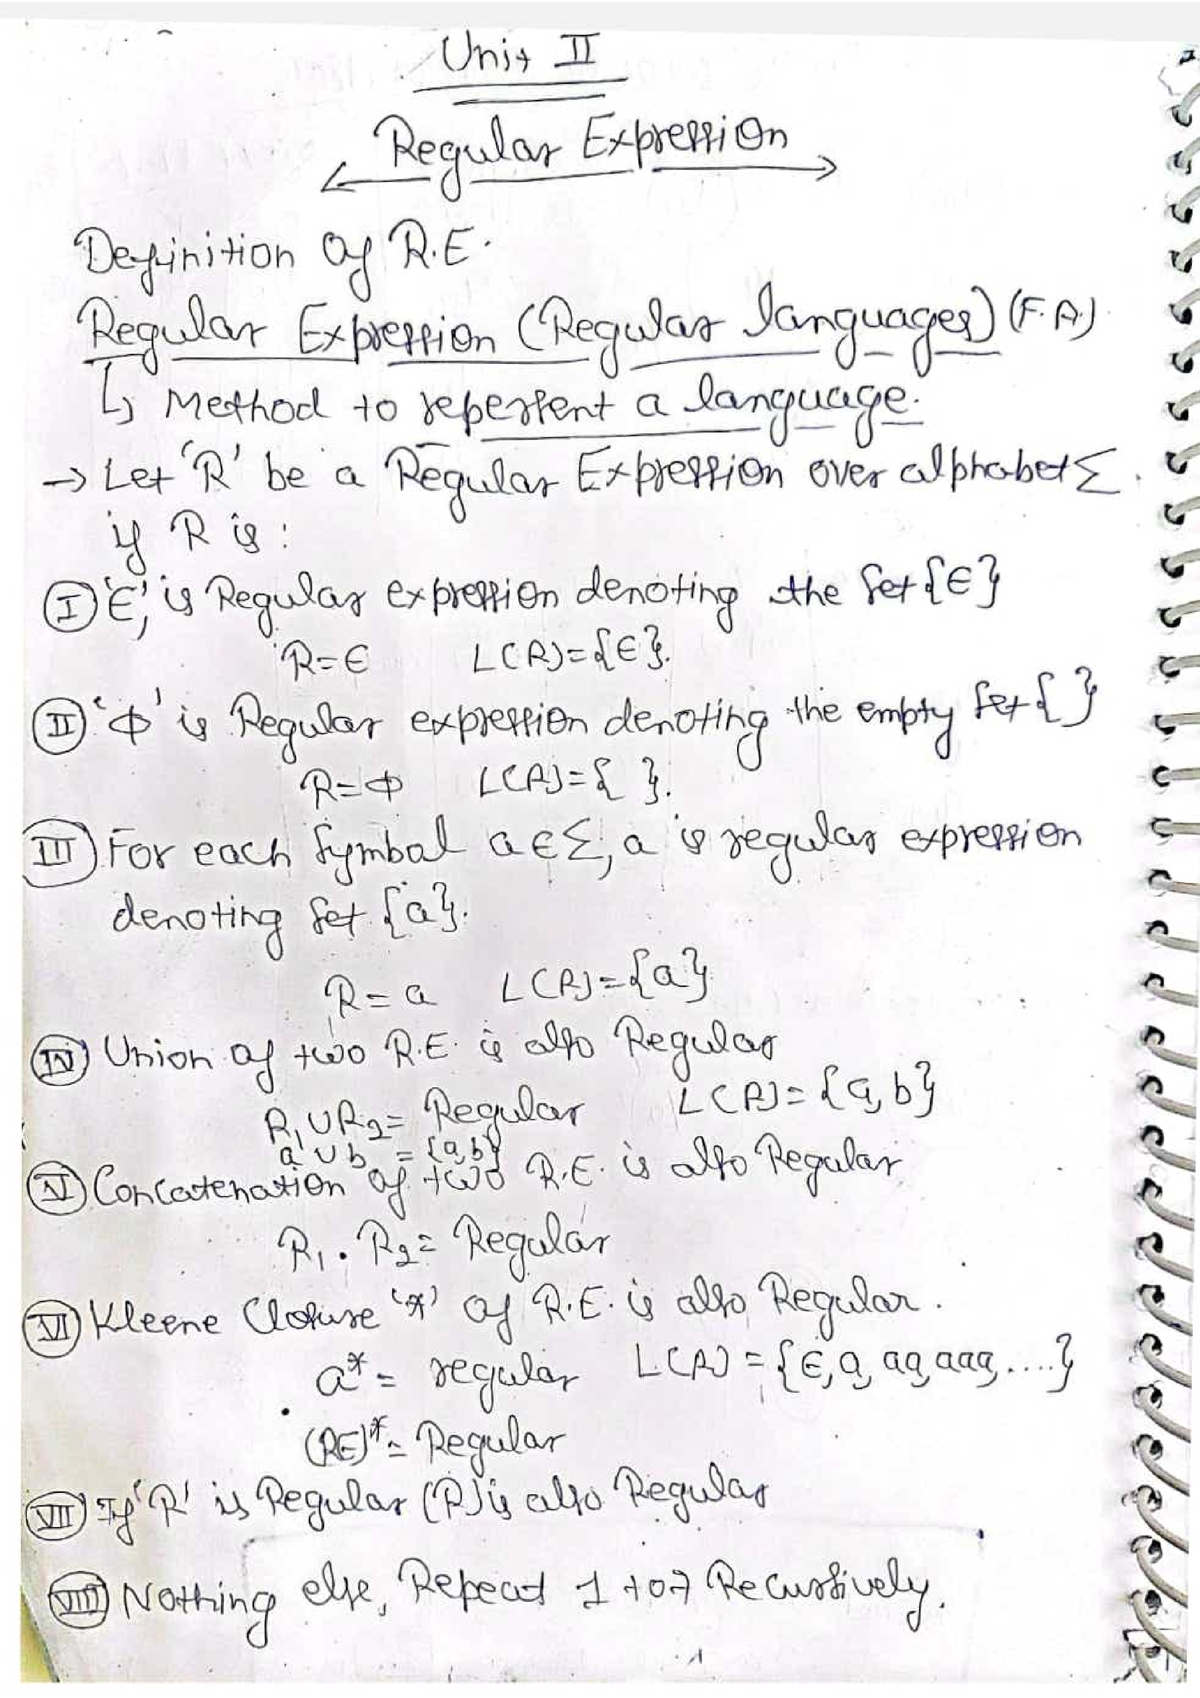 Unit II
Regular Expression
Definition of R.E.
Regular Expression (Regular languages) (F.A.)
↳ Method to repersent a language.
→ Let 'R' be a Regular Expression over alphabet Σ.
if R is:
(I) 'ϵ' is Regular expression denoting the set {ϵ}
R=ϵ L(R)={ϵ}.
(II) 'ϕ' is Regular expression denoting the empty set { }
R=ϕ L(R)={ }.
(III) For each Symbol a ∈ Σ, a is regular expression
denoting set {a}.
R=a L(R)={a}
(IV) Union of two R.E. is also Regular
R₁∪R₂= Regular L(R)= {a, b}
a ∪ b = {a,b}
(V) Concatenation of two R.E. is also Regular
R₁ . R₂= Regular
(VI) Kleene Closure '*' of R.E. is also Regular.
a*= regular L(R)={ϵ, a, aa, aaa, ....}
(RE)*= Regular
(VII) If 'R' is Regular (R) is also Regular
(VIII) Nothing else, Repeat 1 to 7 Recursively.